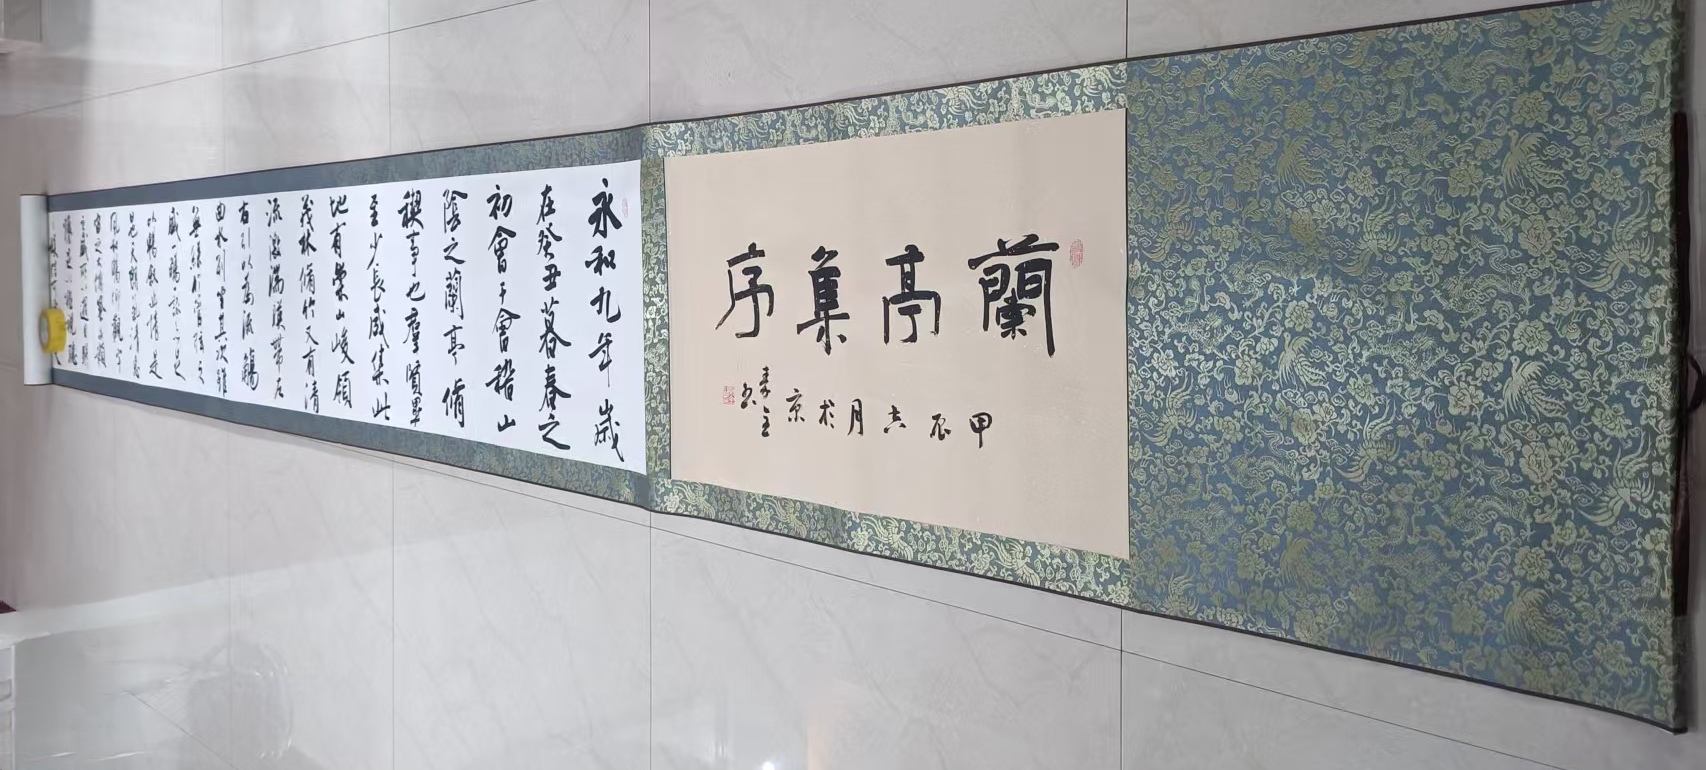 蘭亭集序
甲辰吉月於京
永和九年歲
在癸丑暮春之
初會于會稽山
陰之蘭亭脩
禊事也羣賢畢
至少長咸集此
地有崇山峻領
茂林脩竹又有清
流激湍暎帶左
右引以為流觴
曲水列坐其次雖
無絲竹管弦之
盛一觴一詠亦足
以暢敘幽情是
日也天朗氣清惠
風和暢仰觀宇
宙之大俯察品類
之盛所以遊目騁
懷足以極視聽